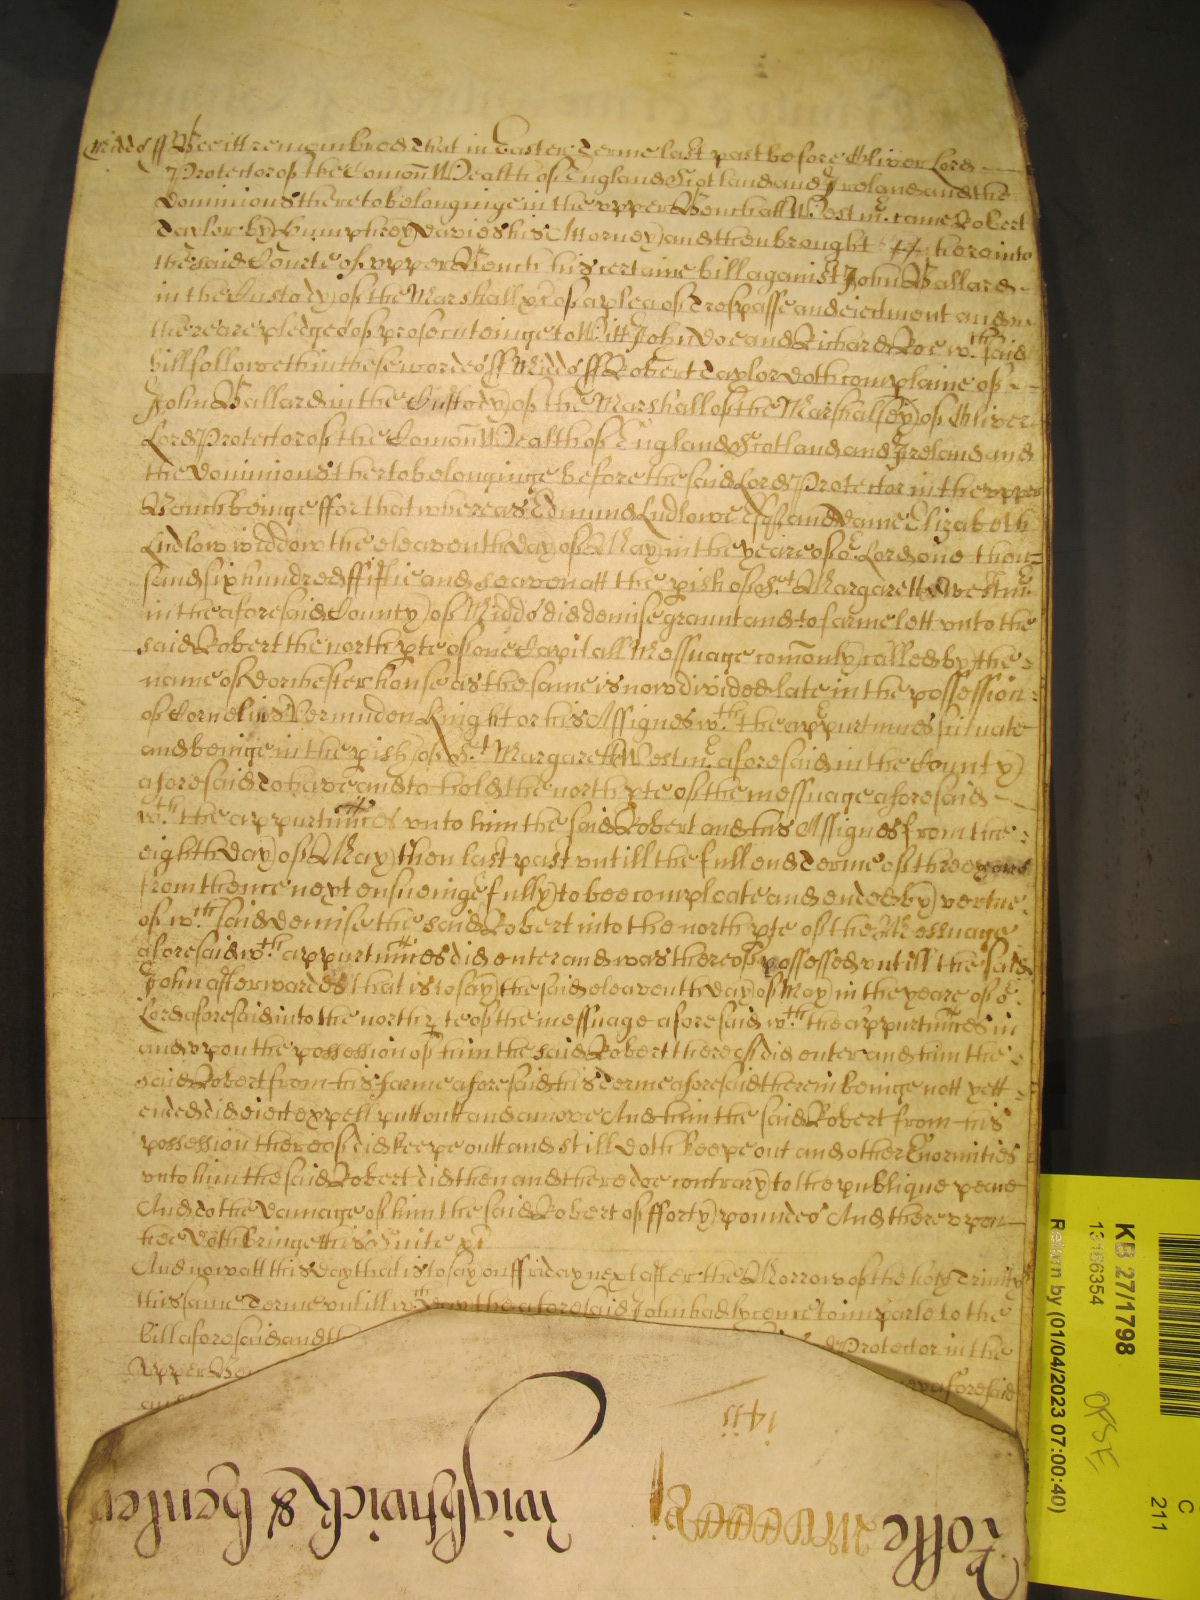 Midd ss Bee itt remembred that in Easter Terme last past before Oliver Lord
Protector of the Comon Wealth of England Scotland and Ireland and the
dominions thereto belonginge in the upper Bench att Westm. came Robert
Taylor by Humphrey Davies his Attorney and then brought here into
the said Courte of upper Bench his certaine bill against John Ballard
in the Custody of the Marshall &c of a plea of Trespasse and eiectment and
there are pledges of prosecuteinge to Witt John Doe and Richard Roe wch. said
bill followeth in these wordes ss Midd ss Robert Taylor doth complaine of
John Ballard in the Custody of the Marshall of the Marshallsey of Oliver
Lord Protector of the Comon Wealth of England Scotland and Ireland and
the dominions therto belonginge before the said Lord Protector in the upper
Bench beinge ffor that whereas Edmund Ludlowe Esq and dame Elizabeth
Ludlow widdow the eleaventh day of May in the yeare of or Lord one thou=
sand six hundred ffiftie and seaven att the pish of St. Margaretts Westm.
in the aforesaid County of Midd did demise graunt and to farme lett unto the
said Robert the north pte of one Capitall Messuage comonly called by the
name of Dorchester house as the same is now divided late in the possession
of Cornelius Vermuden Knight or his Assignes wth. the appurtnnces situate
and beinge in the pish of St Margaretts Westm. aforesaid in the County
aforesaid To have and to hold the north pte of the messuage aforesaid
wth. the appurtnnces unto him the said Robert and his Assignes from the
eighth day of May then last past untill the full end terme of three yeares
from thence next ensueinge fully to bee compleate and ended by vertue
of wch. said demise the said Robert into the north pte of the Messuage
aforesaid wth. appurtnnces did enter and was thereof possessed untill the said
John afterwardes that is to say the said eleaventh day of May in the yeare of or
Lord aforesaid into the north pte of the messuage aforesaid wth. the appurtnnces in
and upon the possession of him the said Robert thereof did enter and him the
said Robert from his farme aforesaid his terme aforesaid therein beinge nott yett
ended did eiect expell putt outt and amove And him the said Robert from his
possession thereof did keepe outt and still doth keepe out and other Enormities
unto him the said Robert did then and there doe contrary to the publique peace
And to the damage of him the said Robert of fforty poundes And thereupon
hee doth bringe his Suite &c
And now att this day that is to say on ffriday next after the Morrow of the holy Trinity
this same Terme untill wch day the aforesaid John had lycence to imparle to the
bill aforesaid and Protector in the
Upper Ben aforesaid
and
Rolle
Wightwick & Henley
KB 27/1798
13166354
Return by (01/04/2023 07:00:40)
C
211